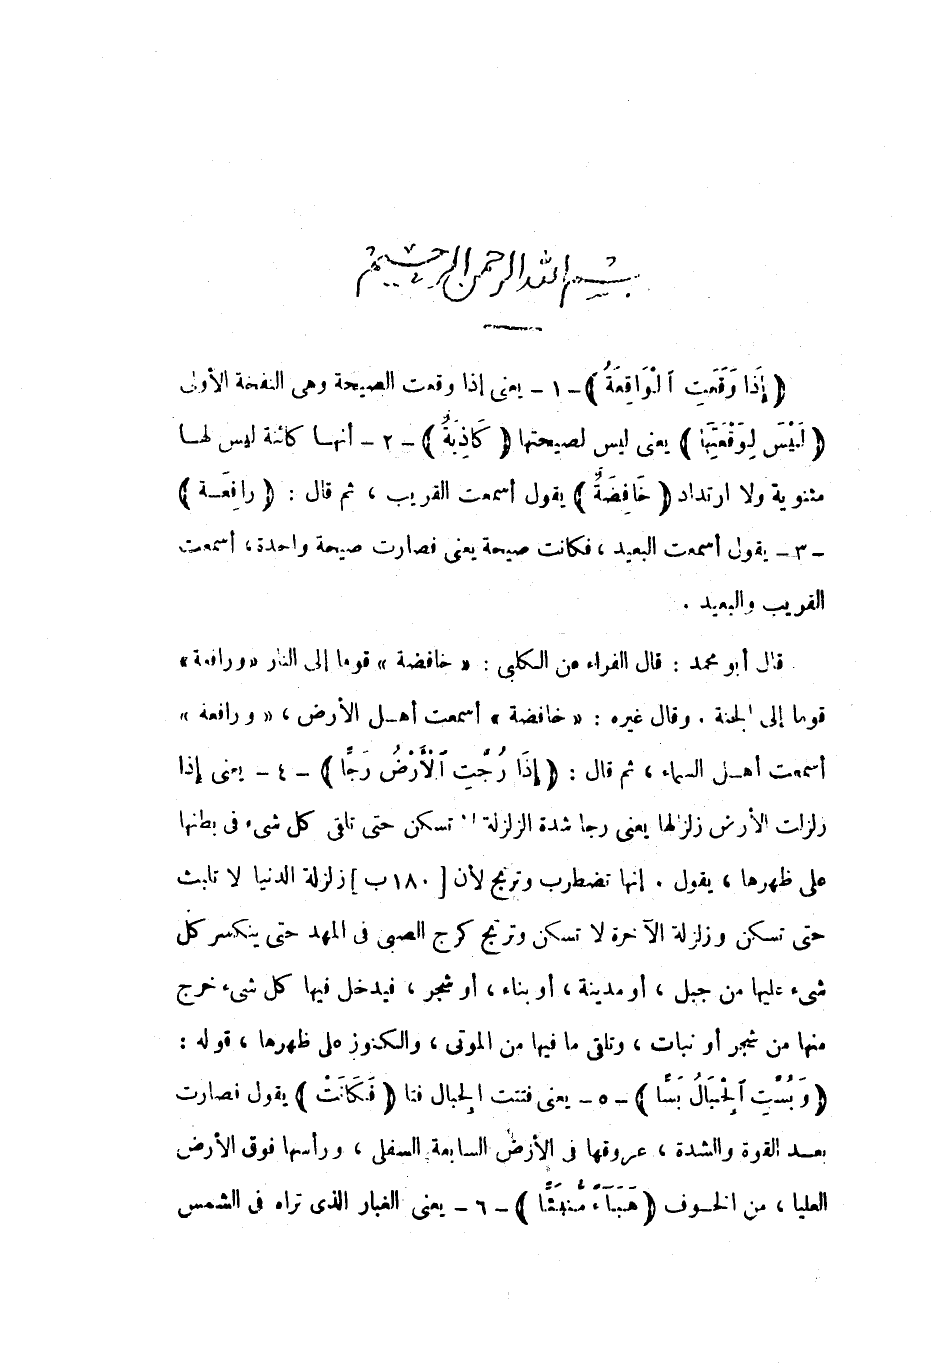 بسم الله الرحمن الرحيم
﴿ إِذَا وَقَعَتِ ٱلْوَاقِعَةُ ﴾ - ١ - يعنى إذا وقعت الصيحة وهى النفخة الأولى
﴿ لَيْسَ لِوَقْعَتِهَا ﴾ يعنى ليس لصيحتها ﴿ كَاذِبَةٌ ﴾ - ٢ - أنهـا كائنة ليس لهـا
مثنوية ولا ارتداد ﴿ خَافِضَةٌ ﴾ يقول أسمعت القريب ، ثم قال : ﴿ رافِعَـة ﴾
- ٣ - يقول أسمعت البعيد ، فكانت صيحة يعنى فصارت صيحة واحدة ، أسمعت
القريب والبعيد .
قال أبو محمد : قال الفراء عن الكلبى : « خافضة » قوما إلى النار « ورافعة »
قوما إلى الجنة . وقال غيره : « خافضة » أسمعت أهـل الأرض ، « ورافعة »
أسمعت أهـل السماء ، ثم قال : ﴿ إِذَا رُجَّتِ ٱلْأَرْضُ رَجًّا ﴾ - ٤ - يعنى إذا
زلزلت الأرض زلزالها يعنى رجا شدة الزلزلة لا تسكن حتى تلقى كل شىء فى بطنها
على ظهرها ، يقول . إنها تضطرب وترتج لأن [ ١٨٠ ب ] زلزلة الدنيا لا تلبث
حتى تسكن وزلزلة الآخرة لا تسكن وترتج كرج الصبى فى المهد حتى ينكسر كل
شىء عليها من جبل ، أو مدينة ، أو بناء ، أو شجر ، فيدخل فيها كل شىء خرج
منها من شجر أو نبات ، وتلقى ما فيها من الموتى ، والكنوز على ظهرها ، قوله :
﴿ وَبُسَّتِ ٱلْجِبَالُ بَسًّا ﴾ - ٥ - يعنى فتتت الجبال فتا ﴿ فَكَانَتْ ﴾ يقول فصارت
بعـد القوة والشدة ، عروقها فى الأرض السابعة السفلى ، ورأسها فوق الأرض
العليا ، من الخـوف ﴿ هَبَآءً مُّنبَثًّا ﴾ - ٦ - يعنى الغبار الذى تراه فى الشمس